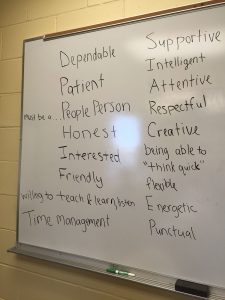 Dependable
Patient
Must be a... People Person
Honest
Interested
Friendly
willing to teach & learn/listen
Time management
Supportive
Intelligent
Attentive
Respectful
Creative
being able to
"think quick"
flexible
Energetic
Punctual